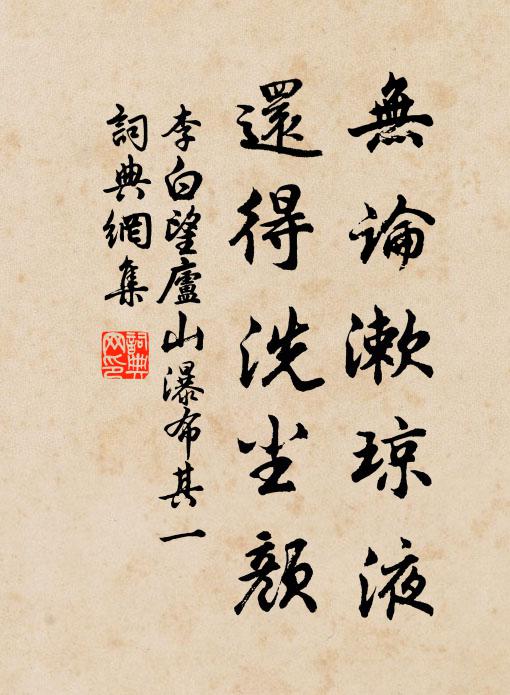 無論漱琼液
還得洗尘顏
李白望廬山瀑布其一
詞典網集
詞典
网印